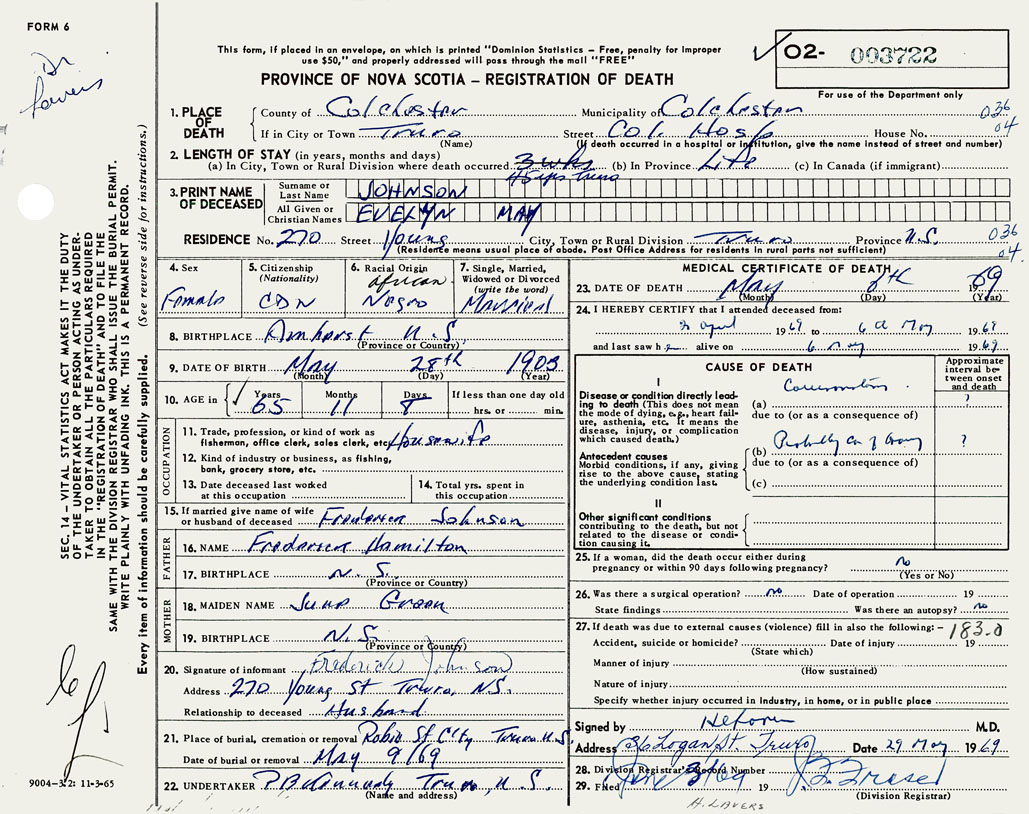 FORM 6
Dr
Lavers
This form, if placed in an envelope, on which is printed "Dominion Statistics – Free, penalty for improper
use $50," and properly addressed will pass through the mail "FREE"
PROVINCE OF NOVA SCOTIA – REGISTRATION OF DEATH
O2- 003722
For use of the Department only
1. PLACE OF DEATH County of Colchester Municipality of Colchester 036
If in City or Town Truro Street Col. Hosp House No. 04
(Name) (If death occurred in a hospital or institution, give the name instead of street and number)
2. LENGTH OF STAY (in years, months and days)
(a) In City, Town or Rural Division where death occurred 3 wks (b) In Province Life (c) In Canada (if immigrant)
45 yrs Truro
3. PRINT NAME OF DECEASED Surname or Last Name JOHNSON
All Given or Christian Names EVELYN MAY
RESIDENCE No. 270 Street Young City, Town or Rural Division Truro Province N.S. 036
(Residence means usual place of abode. Post Office Address for residents in rural parts not sufficient) 04.
4. Sex Female
5. Citizenship (Nationality) CDN
6. Racial Origin African Negro
7. Single, Married, Widowed or Divorced (write the word) Married
8. BIRTHPLACE Amherst N.S
(Province or Country)
9. DATE OF BIRTH May 28th 1903
(Month) (Day) (Year)
10. AGE in Years 65 Months 11 Days 8 If less than one day old
hrs. or min.
OCCUPATION
11. Trade, profession, or kind of work as
fisherman, office clerk, sales clerk, etc. Housewife
12. Kind of industry or business, as fishing,
bank, grocery store, etc.
13. Date deceased last worked
at this occupation
14. Total yrs. spent in
this occupation
15. If married give name of wife
or husband of deceased Frederick Johnson
FATHER
16. NAME Frederick Hamilton
17. BIRTHPLACE N.S.
(Province or Country)
MOTHER
18. MAIDEN NAME June Green
19. BIRTHPLACE N.S.
(Province or Country)
20. Signature of informant Frederick Johnson
Address 270 Young St Truro, N.S.
Relationship to deceased Husband
21. Place of burial, cremation or removal Robie St City Truro N.S.
Date of burial or removal May 9/69
22. UNDERTAKER Truro, N.S
(Name and address)
MEDICAL CERTIFICATE OF DEATH
23. DATE OF DEATH May 6th 1969
(Month) (Day) (Year)
24. I HEREBY CERTIFY that I attended deceased from:
April 1969 to 6 May 1969
and last saw h alive on 6 May 1969
CAUSE OF DEATH
Approximate interval between onset and death
I
Disease or condition directly leading to death (This does not mean
the mode of dying, e.g., heart failure, asthenia, etc. It means the
disease, injury, or complication
which caused death.)
(a) Carcinomatosis ?
due to (or as a consequence of)
Antecedent causes
Morbid conditions, if any, giving
rise to the above cause, stating
the underlying condition last.
(b) Probably Ca of Ovary ?
due to (or as a consequence of)
(c)
II
Other significant conditions
contributing to the death, but not
related to the disease or condition causing it.
25. If a woman, did the death occur either during
pregnancy or within 90 days following pregnancy? no
(Yes or No)
26. Was there a surgical operation? no Date of operation 19
State findings Was there an autopsy? no
27. If death was due to external causes (violence) fill in also the following: – 183.0
Accident, suicide or homicide? Date of injury 19
(State which)
Manner of injury
(How sustained)
Nature of injury
Specify whether injury occurred in industry, in home, or in public place
Signed by M.D.
Address 36 Logan St. Truro Date 29 May 1969
28. Division Registrar's Record Number
29. Filed June 3/69 19 Fraser
(Division Registrar)
H. LAVERS
SEC. 14 – VITAL STATISTICS ACT MAKES IT THE DUTY
OF THE UNDERTAKER OR PERSON ACTING AS UNDER-
TAKER TO OBTAIN ALL THE PARTICULARS REQUIRED
IN THE "REGISTRATION OF DEATH" AND TO FILE THE
SAME WITH THE DIVISION REGISTRAR WHO SHALL ISSUE THE BURIAL PERMIT.
WRITE PLAINLY WITH UNFADING INK. THIS IS A PERMANENT RECORD.
Every item of information should be carefully supplied. (See reverse side for instructions.)